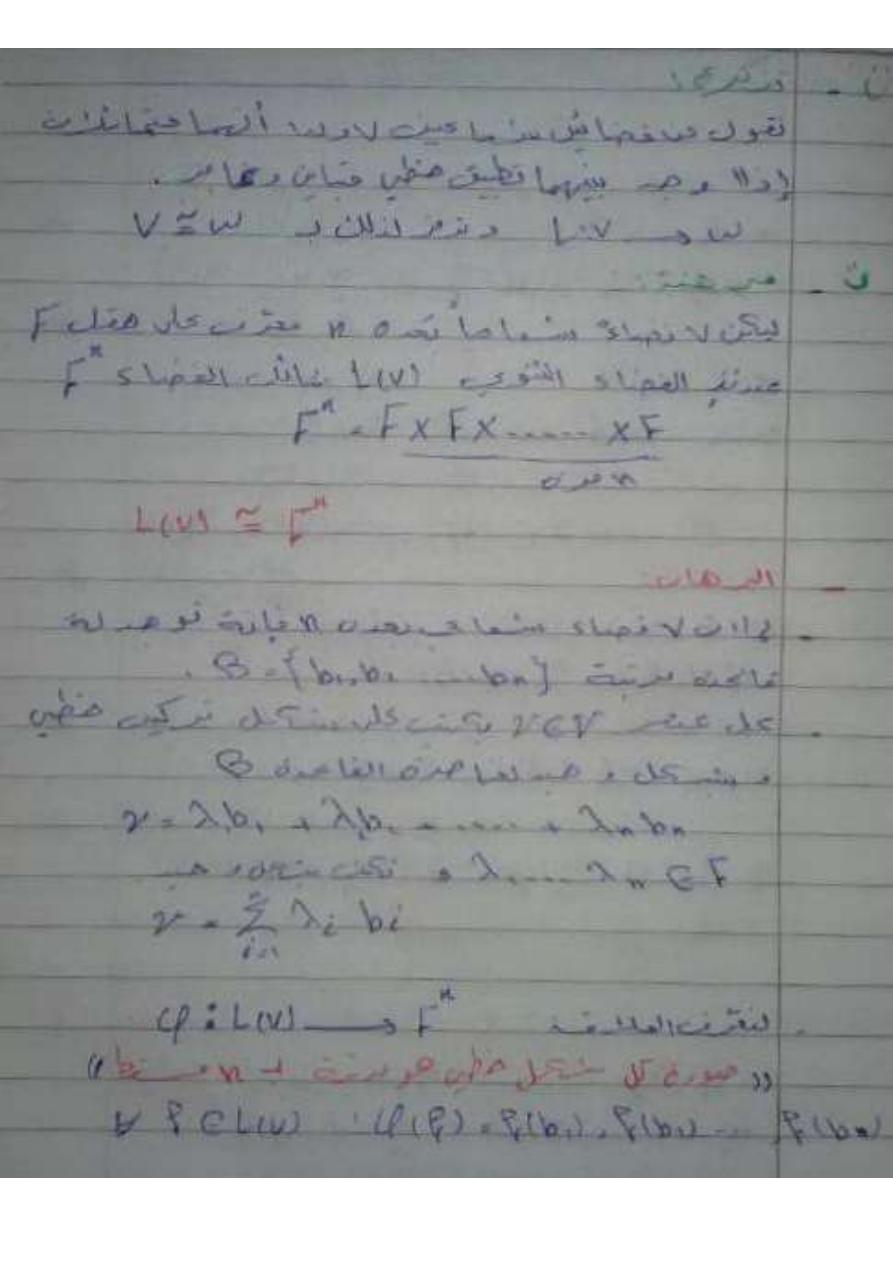 ن - تذكرة:
نقول عن فضائين شعاعيين V و W أنهما متماثلان
إذا وجد بينهما تطبيق خطي متباين وغامر.
L: V → W ونرمز لذلك بـ V ≅ W
ن - مبرهنة:
ليكن V فضاءً شعاعياً بُعده n معرّف على حقل F
عندئذ الفضاء الثنوي L(V) يماثل الفضاء Fⁿ
Fⁿ = F x F x ...... x F
n مرة
L(V) ≅ Fⁿ
- البرهان:
- بما أن V فضاء شعاعي بعده n فإنه توجد له
قاعدة مرتبة B = {b₁, b₂ .... bₙ}.
. كل عنصر v ∈ V يكتب على شكل تركيب خطي
وبشكل وحيد لعناصر القاعدة B
v = λ₁b₁ + λ₂b₂ + ..... + λₙbₙ
λ₁ .... λₙ ∈ F و تكتب بشكل وحيد
v = Σⁿᵢ₌₁ λᵢ bᵢ
. لنعرّف العلاقة φ : L(V) → Fⁿ
(( صورة كل شكل خطي هو مرتبة بـ n مسقط ))
∀ f ∈ L(V) : φ(f) = f(b₁), f(b₂) ... f(bₙ)